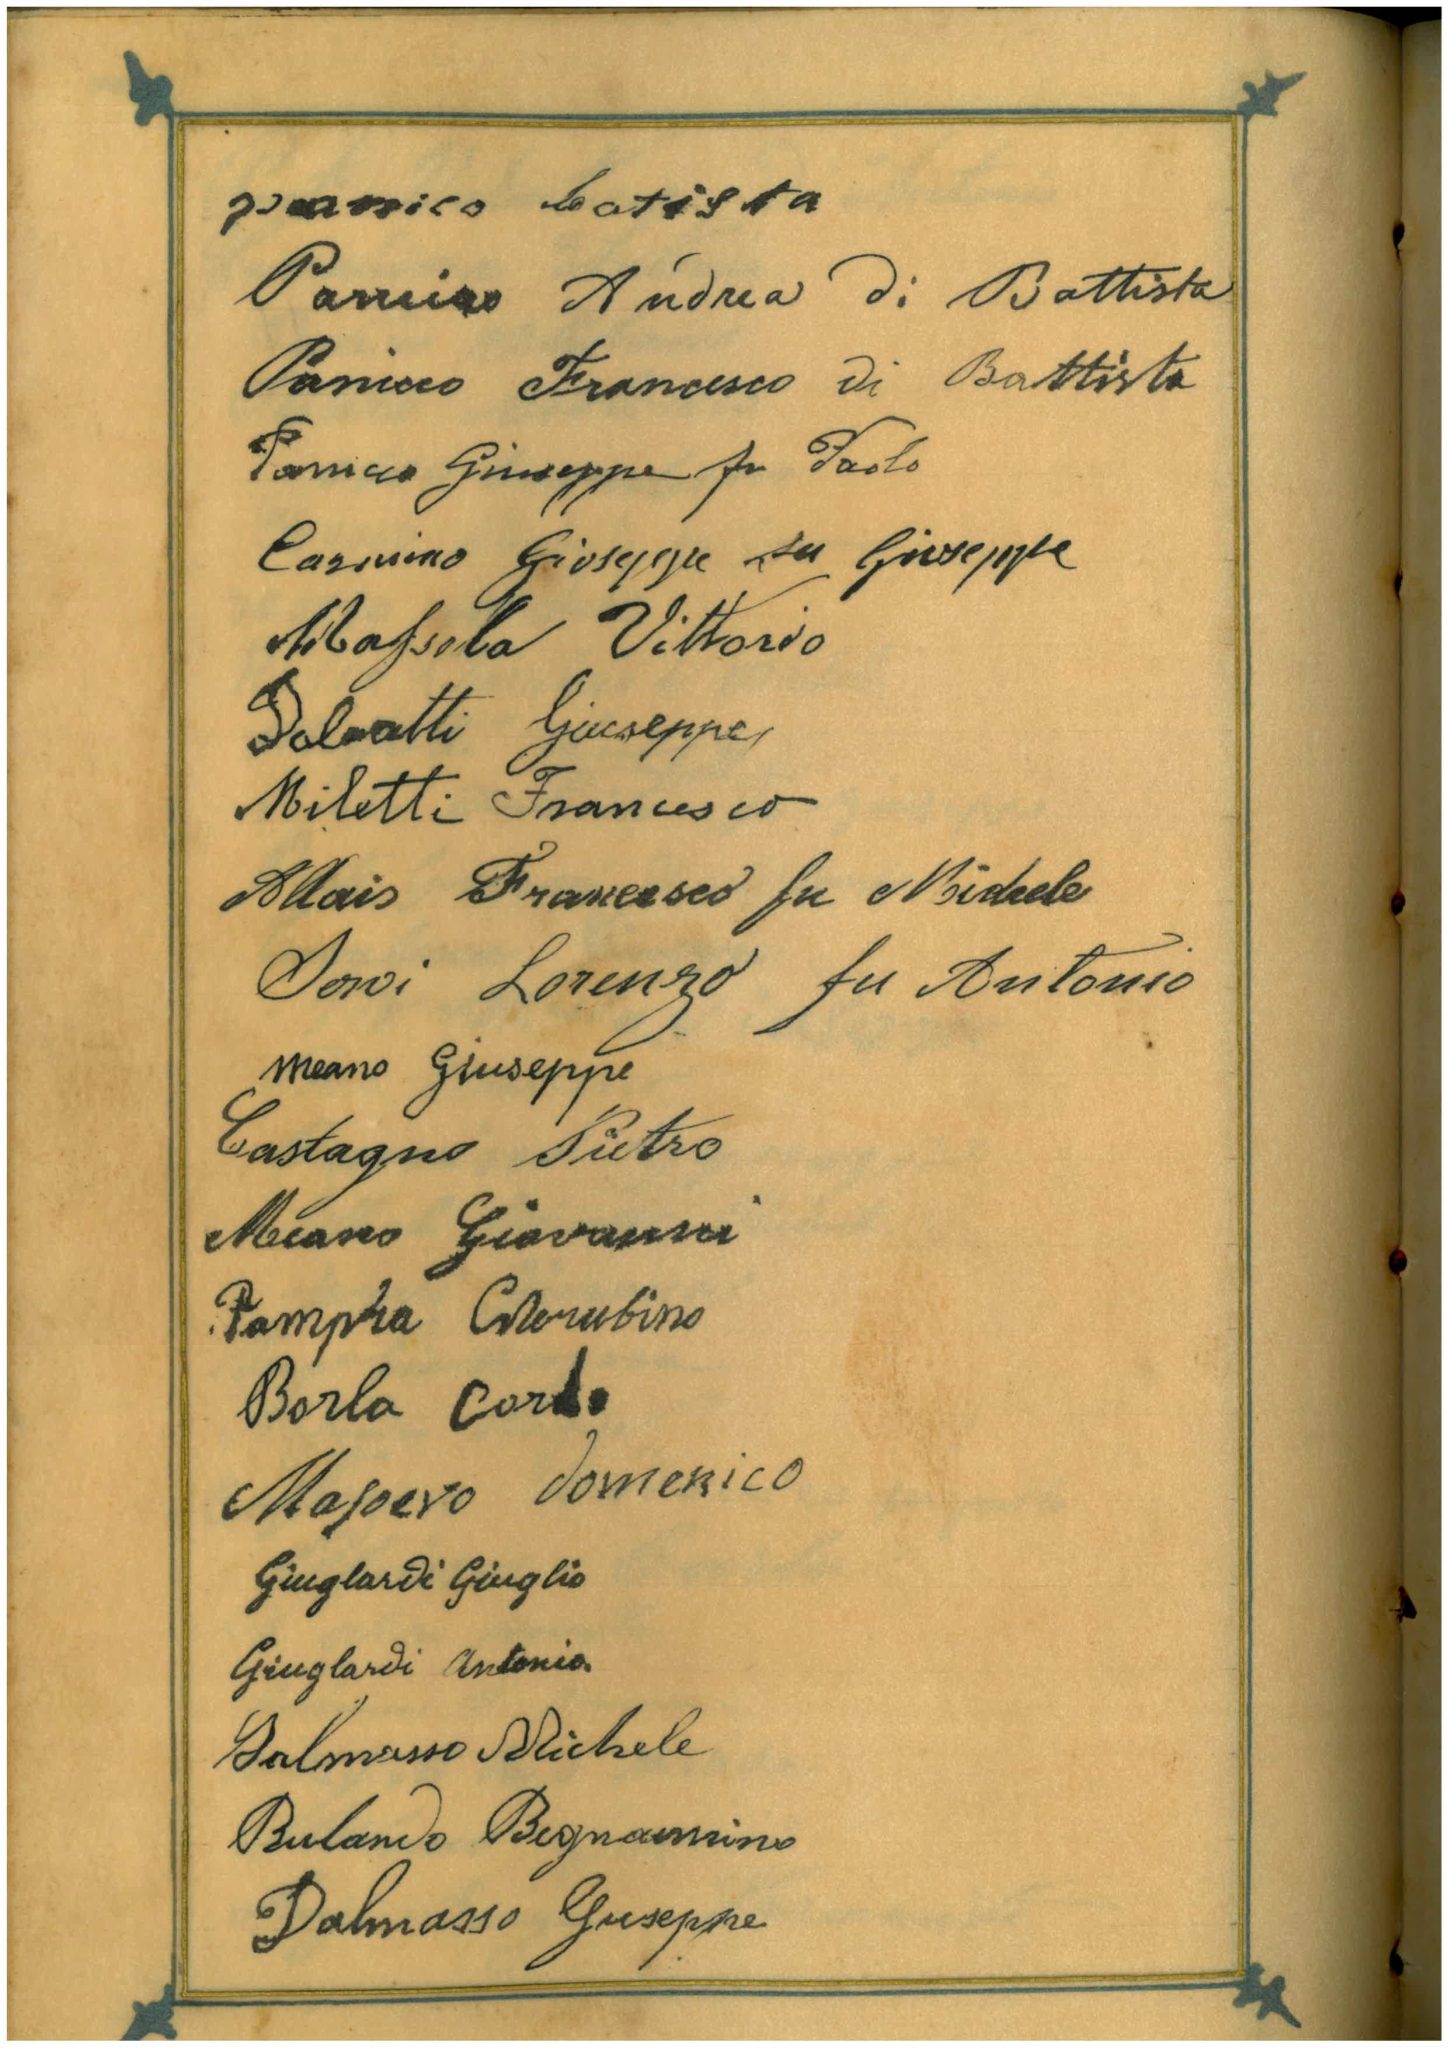 panico batista
Panico Andrea di Battista
Panicco Francesco di Battista
Panicco Giuseppe fu Paolo
Giuseppe fu Giuseppe
Massola Vittorio
Giuseppe
Miletti Francesco
Allais Francesco fu Michele
Lorenzo fu Antonio
Meano Giuseppe
Castagno Pietro
Meano Giovanni
Cherubino
Borla Carlo
Masoero domenico
Giuglardi Giuglio
Giuglardi Antonio
Dalmasso Michele
Rulando Begnamino
Dalmasso Giuseppe